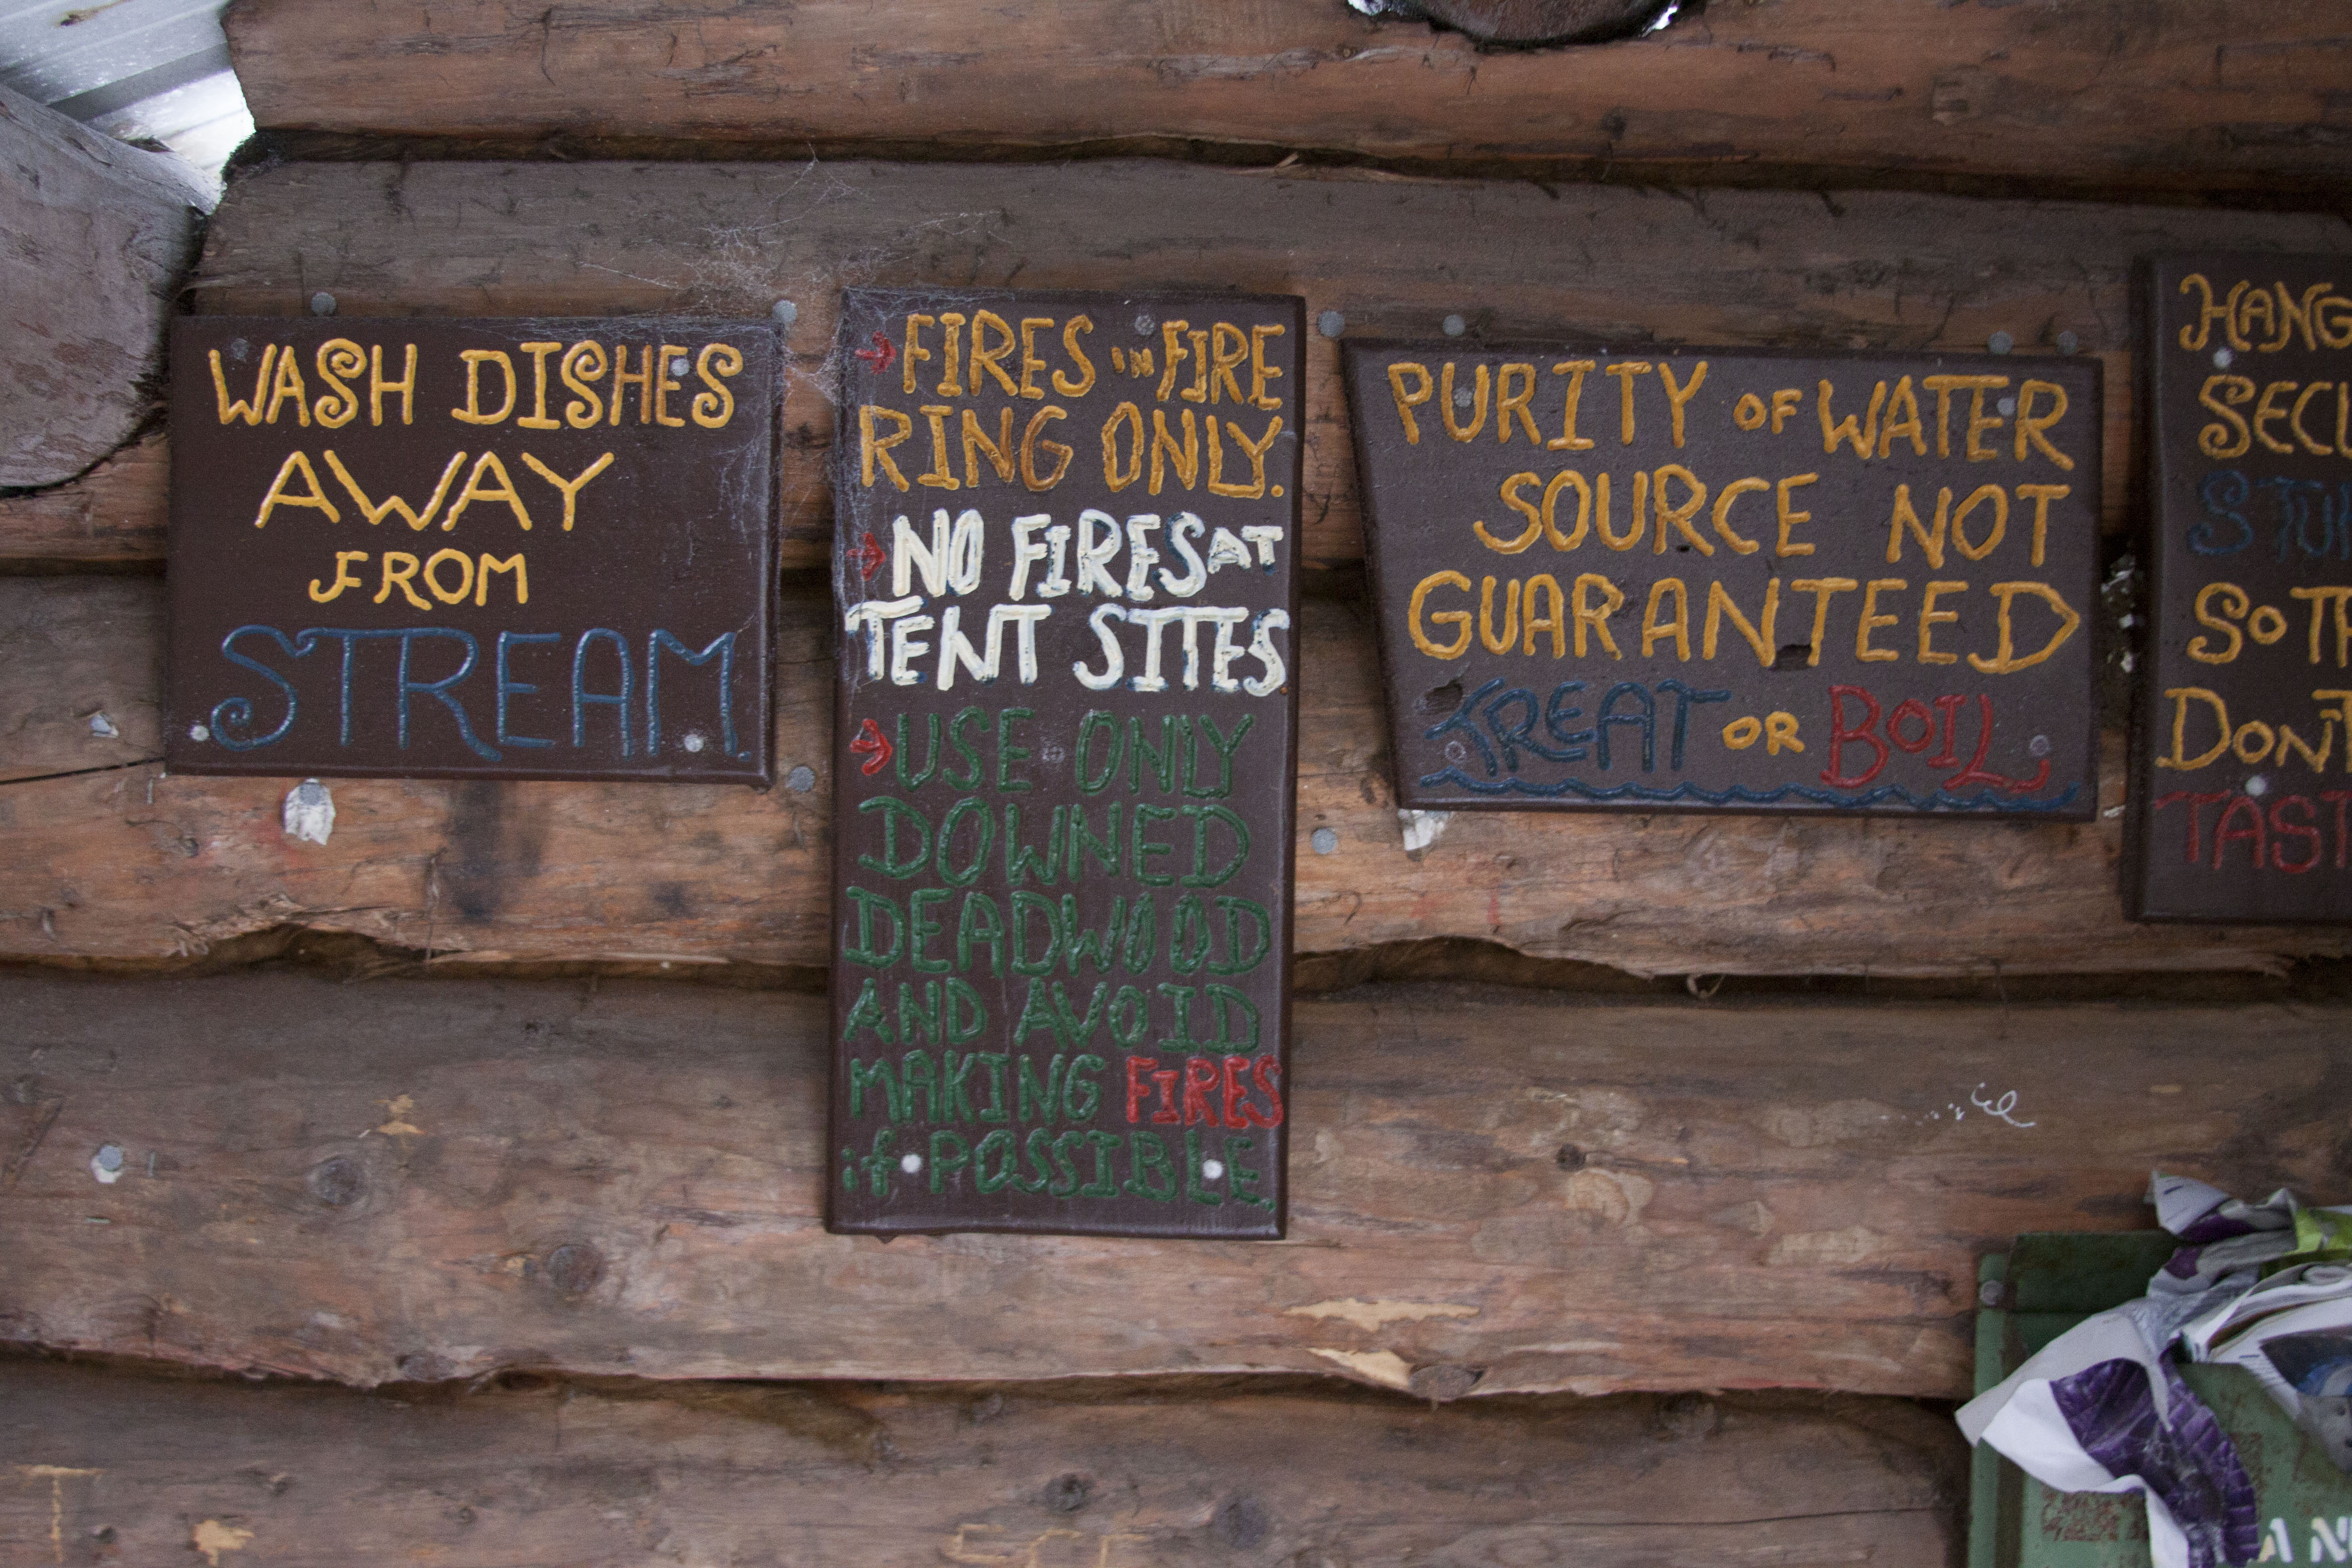 WASH DISHES
AWAY
FROM
STREAM.
→ FIRES IN FIRE
RING ONLY.
→ NO FIRES AT
TENT SITES
→ USE ONLY
DOWNED
DEADWOOD
AND AVOID
MAKING FIRES
if POSSIBLE.
PURITY OF WATER
SOURCE NOT
GUARANTEED
TREAT OR BOIL
HANG
SO
DON'T